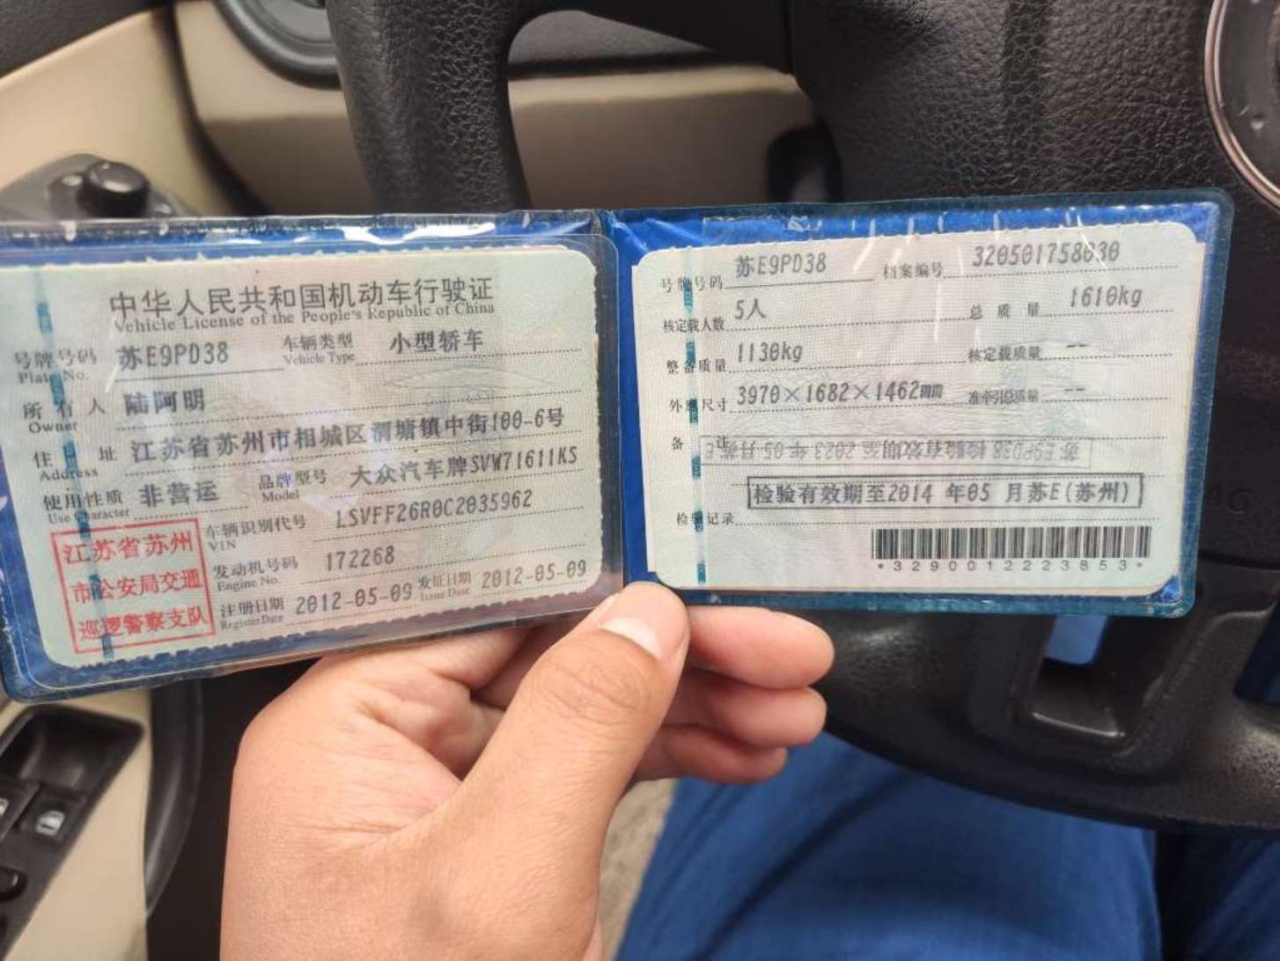 中华人民共和国机动车行驶证
Vehicle License of the People's Republic of China
号牌号码 苏E9PD38 车辆类型 小型轿车
Plate No. Vehicle Type
所有人 陆阿明
Owner
住址 江苏省苏州市相城区渭塘镇中街100-6号
Address
使用性质 非营运 品牌型号 大众汽车牌SVW71611KS
Use Character Model
车辆识别代号 LSVFF26R0C2035962
VIN
发动机号码 172268
Engine No.
注册日期 2012-05-09 发证日期 2012-05-09
Register Date Issue Date
江苏省苏州
市公安局交通
巡逻警察支队
号牌号码 苏E9PD38 档案编号 320501758030
核定载人数 5人 总质量 1610kg
整备质量 1130kg 核定载质量 --
外廓尺寸 3970×1682×1462mm 准牵引总质量 --
备注
检验有效期至2014年05月苏E(苏州)
检验记录
*3290012223853*